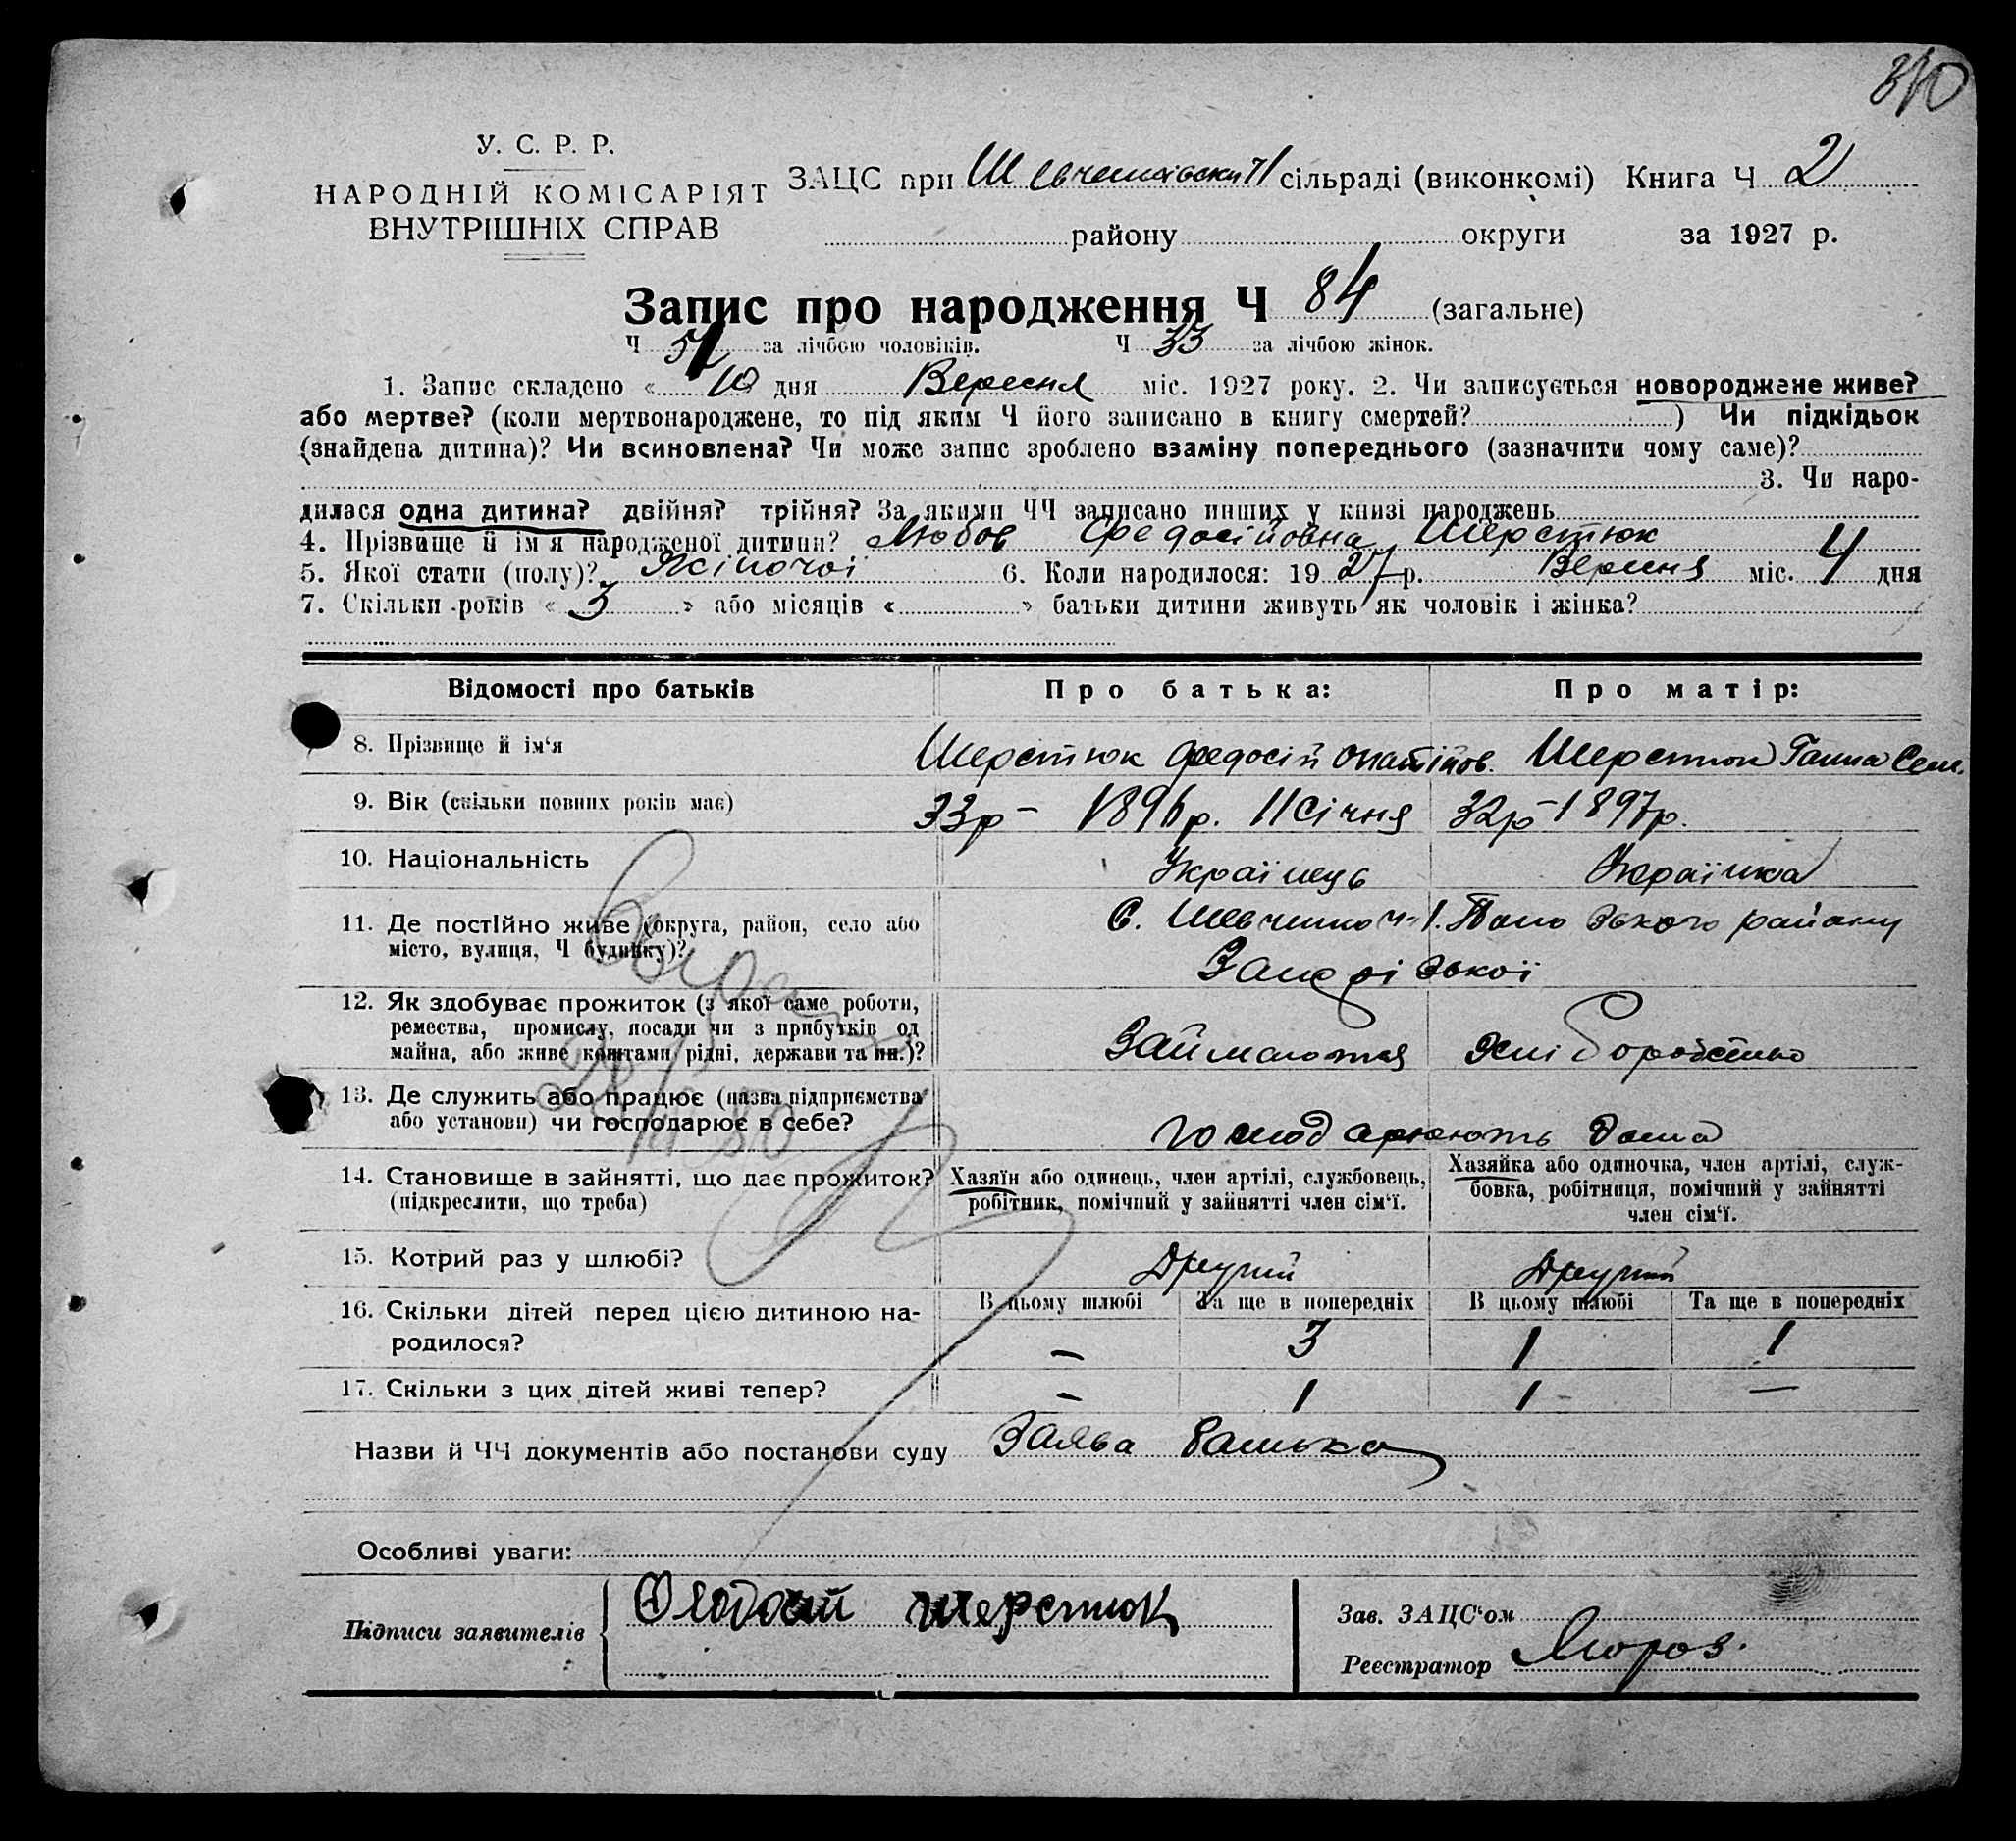 310
У. С. Р. Р.
НАРОДНІЙ КОМІСАРІЯТ
ВНУТРІШНІХ СПРАВ
ЗАЦС при сільраді (виконкомі) Книга Ч 2
району округи за 1927 р.
Запис про народження Ч 84 (загальне)
Ч за лічбою чоловіків. Ч 33 за лічбою жінок.
1. Запис складено « 10 дня Вересня міс. 1927 року. 2. Чи записується новороджене живе?
або мертве? (коли мертвонароджене, то під яким Ч його записано в книгу смертей? ) Чи підкідьок
(знайдена дитина)? Чи всиновлена? Чи може запис зроблено взаміну попереднього (зазначити чому саме)?
3. Чи наро-
дилася одна дитина? двійня? трійня? За якими ЧЧ записано инших у книзі народжень
4. Прізвище й ім'я народженої дитини? Любов Федосійовна Шерстюк
5. Якої стати (полу)? Жіночої 6. Коли народилося: 19 27 р. Вересня міс. 4 дня
7. Скільки років « 3 » або місяців « » батьки дитини живуть як чоловік і жінка?
Відомості про батьків Про батька: Про матір:
8. Прізвище й ім'я Шерстюк Федосій Шерстюк Ганна Сем.
9. Вік (скільки повних років має) 33р – 1896р. 11 Січня 32р – 1897р.
10. Національність Українець Українка
11. Де постійно живе (округа, район, село або С. Шевченко ч-1. району
місто, вулиця, Ч будинку)? Запорізької
12. Як здобуває прожиток (з якої саме роботи,
ремества, промислу, посади чи з прибутків од
майна, або живе коштами рідні, держави та ин.)? Займаються хліборобством
13. Де служить або працює (назва підприємства
або установи) чи господарює в себе? господарюють дома
14. Становище в зайнятті, що дає прожиток? Хазяїн або одинець, член артілі, службовець, Хазяйка або одиночка, член артілі, служ-
(підкреслити, що треба) робітник, помічний у зайнятті член сім'ї. бовка, робітниця, помічний у зайнятті
член сім'ї.
15. Котрий раз у шлюбі? Другий Другий
16. Скільки дітей перед цією дитиною на- В цьому шлюбі Та ще в попередніх В цьому шлюбі Та ще в попередніх
родилося? – 3 1 1
17. Скільки з цих дітей живі тепер? – 1 1 –
Назви й ЧЧ документів або постанови суду Заява батька
Особливі уваги:
Підписи заявителів шерстюк
Зав. ЗАЦС'ом
Реєстратор Мороз.